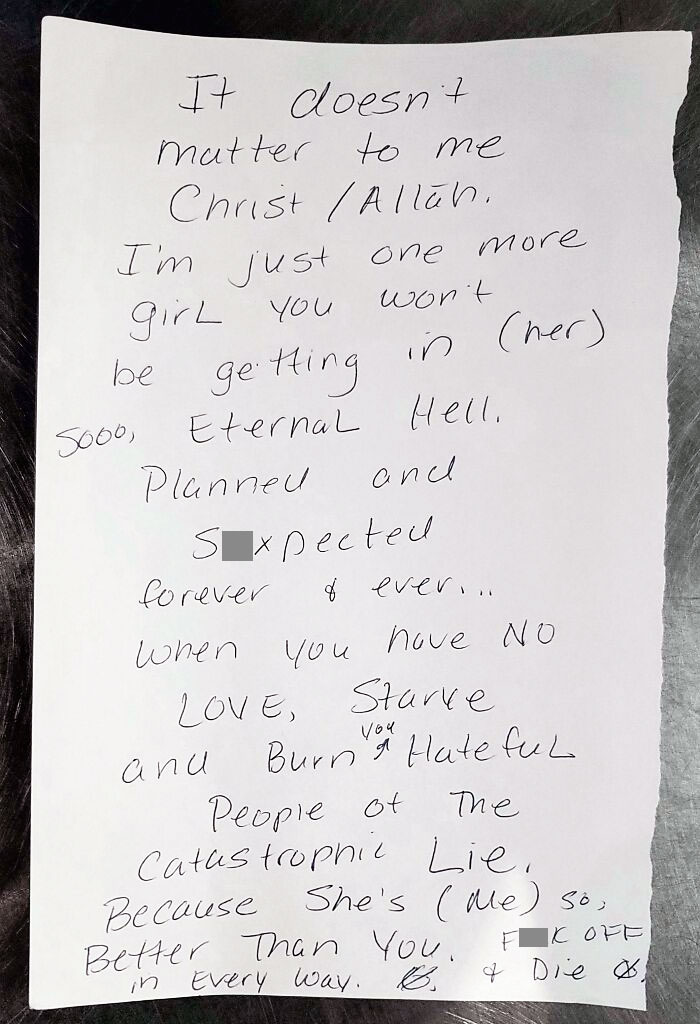 It doesn't
matter to me
Christ / Allāh.
I'm just one more
girL you won't
be getting in (her)
sooo, EternaL Hell.
Planned and
S xpected
forever & ever...
when you have NO
LOVE, Starve
and Burn you HatefuL
People of The
Catastrophic Lie.
Because She's (Me) so,
Better Than You. F K OFF
in Every Way. & Die